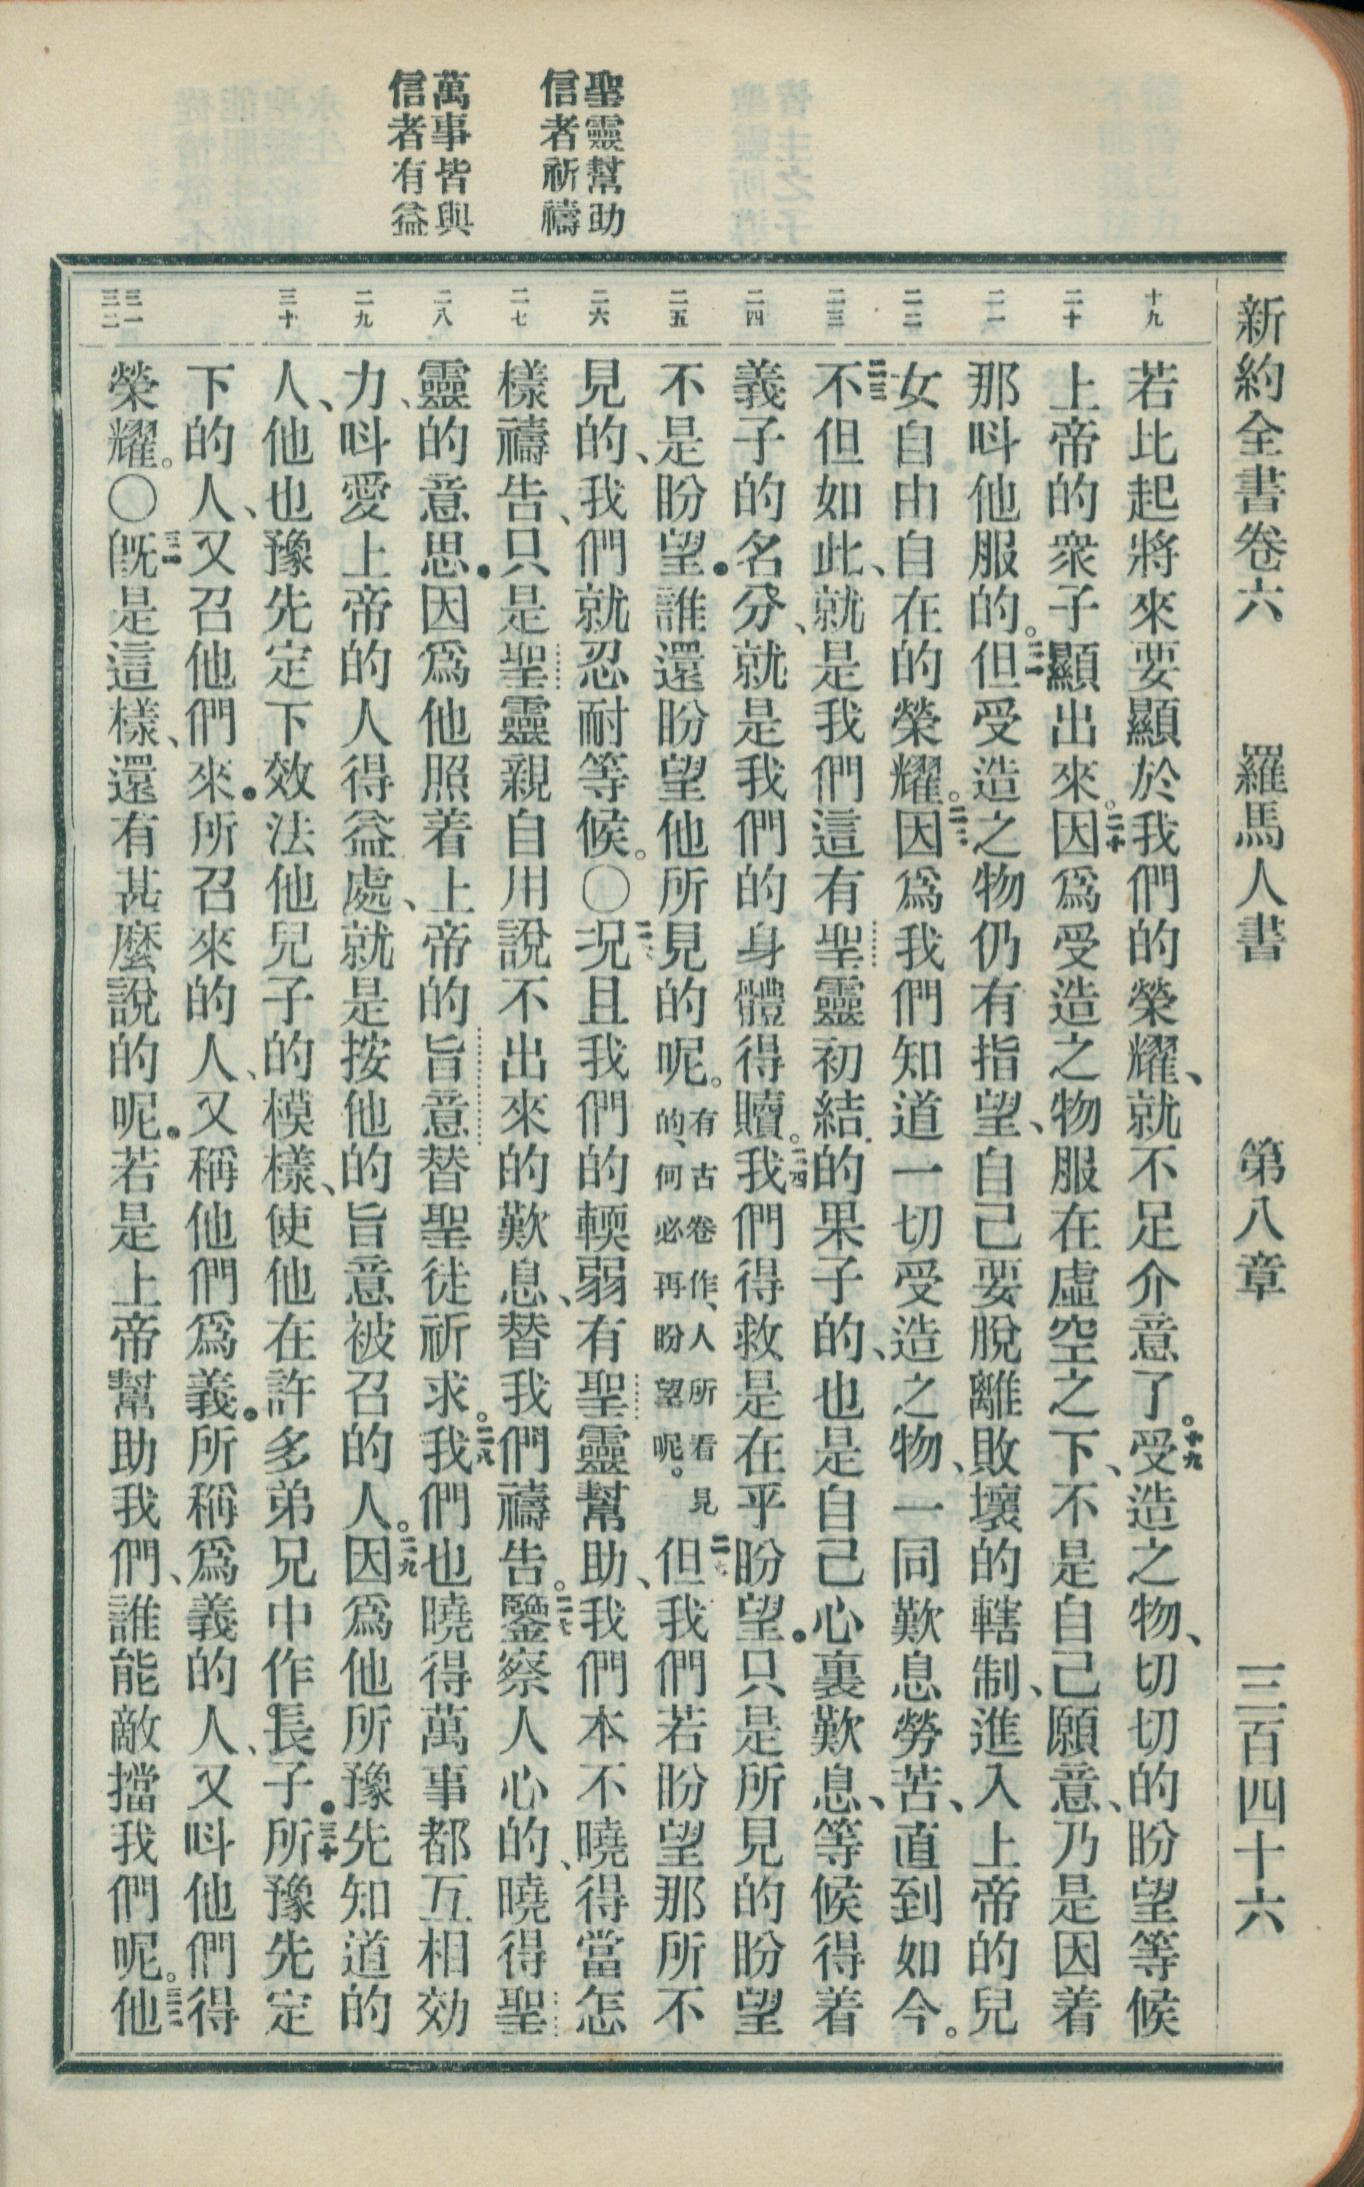 新約全書卷六 羅馬人書 第八章 三百四十六
聖靈幫助
信者祈禱
萬事皆與
信者有益
十九
二十
二一
二二
二三
二四
二五
二六
二七
二八
二九
三十
三一
三二
若比起將來要顯於我們的榮耀、就不足介意了。十九受造之物、切切的盼望等候
上帝的衆子顯出來。二十因爲受造之物服在虛空之下、不是自己願意、乃是因着
那呌他服的。二一但受造之物仍有指望、自己要脫離敗壞的轄制、進入上帝的兒
女自由自在的榮耀。二二因爲我們知道一切受造之物、一同歎息勞苦、直到如今。
二三不但如此、就是我們這有聖靈初結的果子的、也是自己心裏歎息、等候得着
義子的名分、就是我們的身體得贖。二四我們得救是在乎盼望．只是所見的盼望
不是盼望．誰還盼望他所見的呢。有古卷作、人所看見的、何必再盼望呢。二五但我們若盼望那所不
見的、我們就忍耐等候。〇二六况且我們的輭弱有聖靈幫助、我們本不曉得當怎
樣禱告、只是聖靈親自用說不出來的歎息、替我們禱告。二七鑒察人心的、曉得聖
靈的意思．因爲他照着上帝的旨意替聖徒祈求。二八我們也曉得萬事都互相効
力、呌愛上帝的人得益處、就是按他的旨意被召的人。二九因爲他所豫先知道的
人、他也豫先定下效法他兒子的模樣、使他在許多弟兄中作長子．三十所豫先定
下的人、又召他們來．所召來的人、又稱他們爲義．所稱爲義的人、又呌他們得
榮耀。〇三一旣是這樣、還有甚麼說的呢．若是上帝幫助我們、誰能敵擋我們呢。三二他